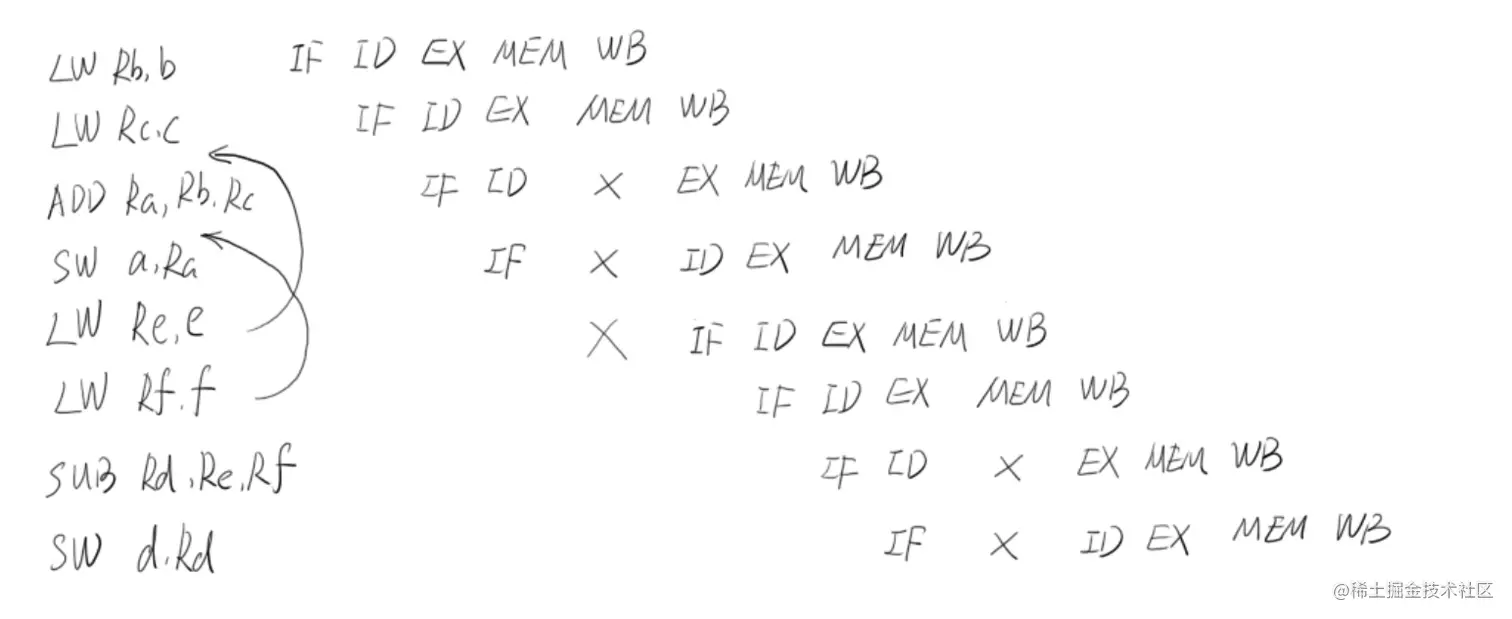 LW Rb,b IF ID EX MEM WB
LW Rc,c IF ID EX MEM WB
ADD Ra,Rb,Rc IF ID X EX MEM WB
SW a,Ra IF X ID EX MEM WB
LW Re,e X IF ID EX MEM WB
LW Rf,f IF ID EX MEM WB
SUB Rd,Re,Rf IF ID X EX MEM WB
SW d,Rd IF X ID EX MEM WB
@稀土掘金技术社区